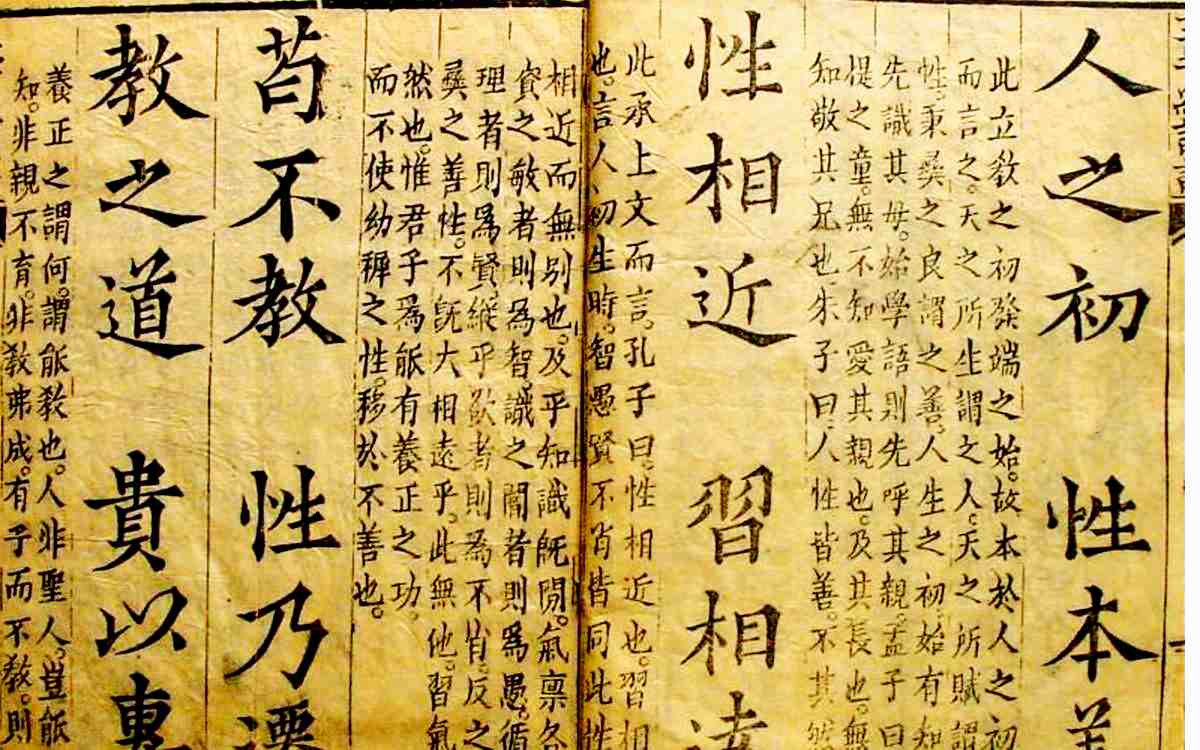 人之初　性本善
此立敎之初發端之始。故本於人之初
而言之。天之所生謂之人。天之所賦謂
性。秉彝之良謂之善。人生之初。始有知
先識其母。始學語則先呼其親。孟子曰
提之童。無不知愛其親也。及其長也。無
知敬其兄也。朱子曰。人性皆善。不其然
性相近　習相遠
此承上文而言。孔子曰。性相近也。習相
也。言人之初生時。智愚賢不肖皆同此性
相近而無别也。及乎知識旣開。氣禀各
資之敏者則為智。識之闇者則爲愚。循
理者則爲賢。縱乎欲者則爲不肖。反之
彝之善性。不旣大相遠乎。此無他。習氣
然也。惟君子爲能有養正之功。
而不使幼穉之性。移於不善也。
苟不教　性乃遷
教之道　貴以專
養正之謂何。謂能敎也。人非聖人。豈能
知。非親不育。非敎弗成。有子而不敎。則